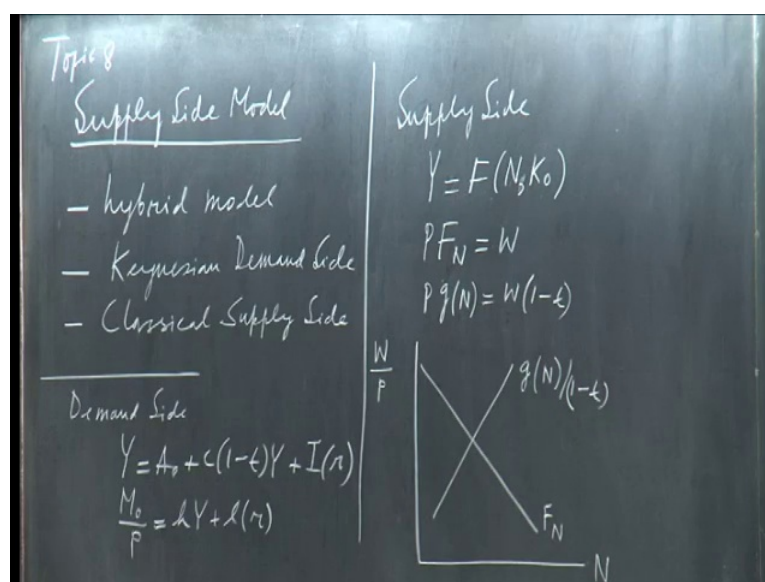 Topic 8
Supply Side Model
- hybrid model
- Keynesian Demand Side
- Classical Supply Side
Demand Side
Y = A₀ + c(1-t)Y + I(r)
M₀/P = kY + l(r)
Supply Side
Y = F(N, K₀)
P F_N = W
P g(N) = W(1-t)
W/P
g(N)/(1-t)
F_N
N